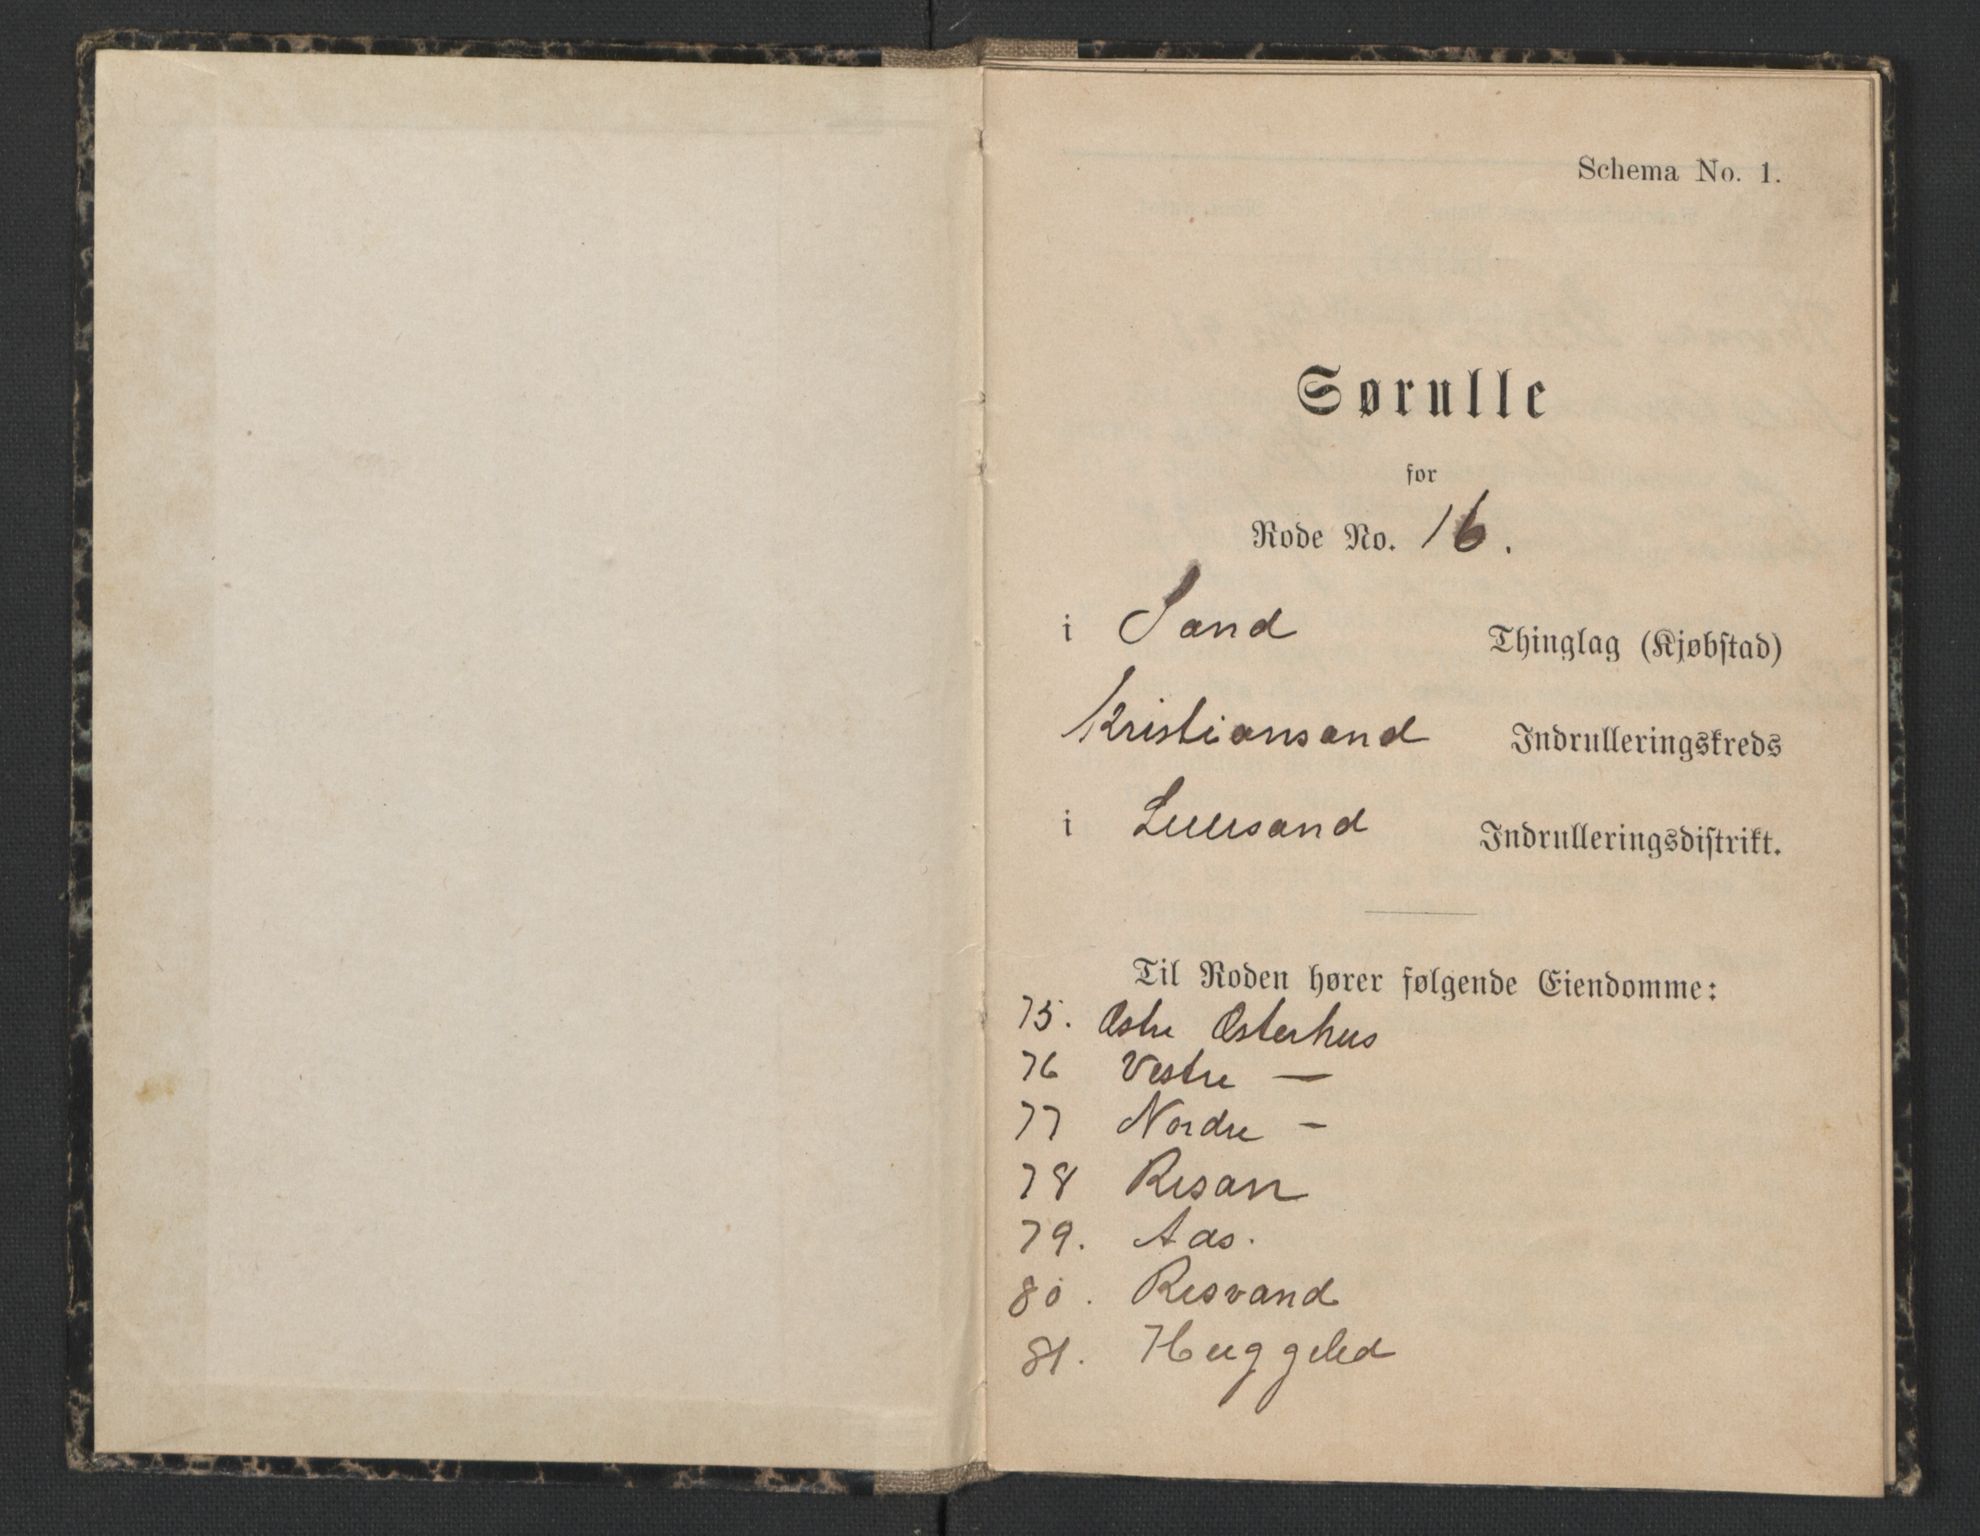 Schema No. 1.
Sørulle
for
Rode No. 16.
i Sand Thinglag (Kjøbstad)
Kristiansand Indrulleringskreds
i Lillesand Indrulleringsdistrikt.
Til Roden hører følgende Eiendomme:
75. Østre Østerhus
76 Vestre —
77 Nordre —
78 Resan
79. Aas.
80. Resvand
81.